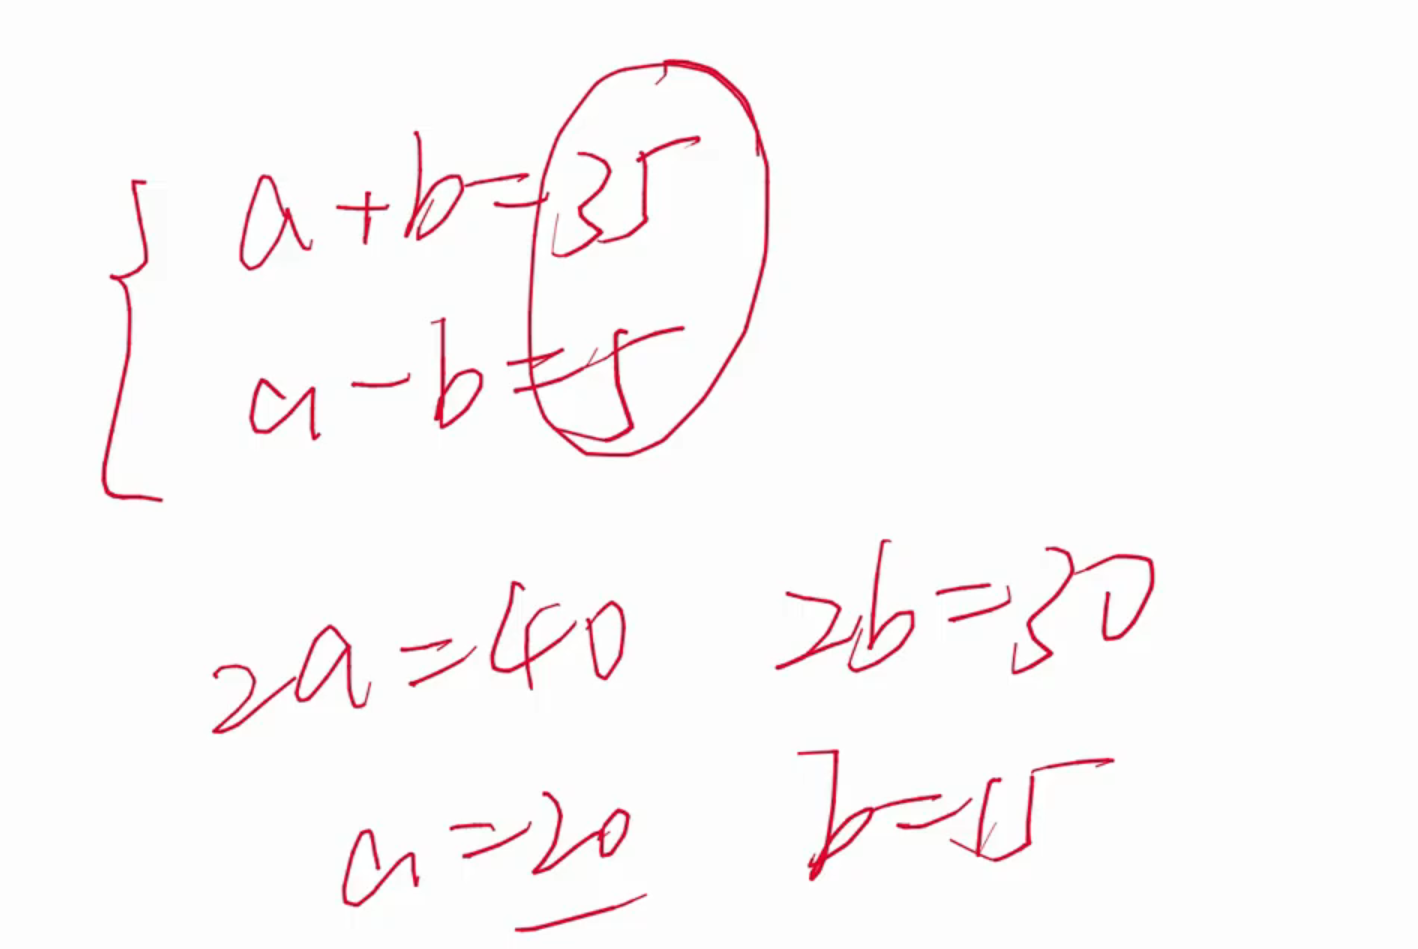 a+b=35
a-b=5
2a=40 2b=30
a=20 b=15